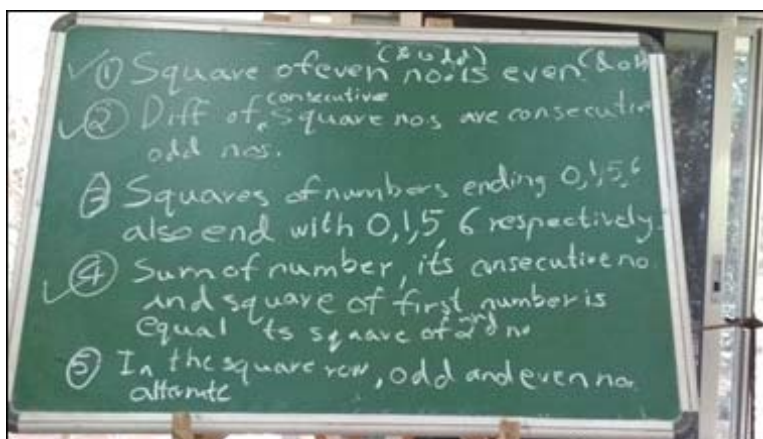 (& odd)
① Square of even no. is even (& odd)
consecutive
② Diff of square nos are consecutive
odd nos.
③ Squares of numbers ending 0,1,5,6
also end with 0,1,5,6 respectively.
④ Sum of number, its consecutive no
and square of first number is
equal to square of 2nd no
⑤ In the square row, odd and even nos
alternate